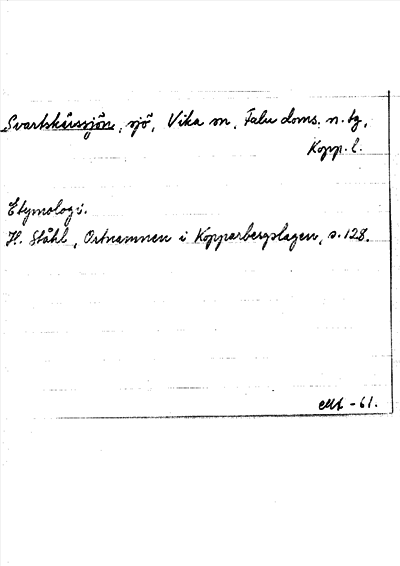 Svartskärssjön, sjö, Vika sn, Falu doms. n. tg,
Kopp. l.
Etymologi.
H. Ståhl, Ortnamnen i Kopparbergslagen, s. 128.
-61.